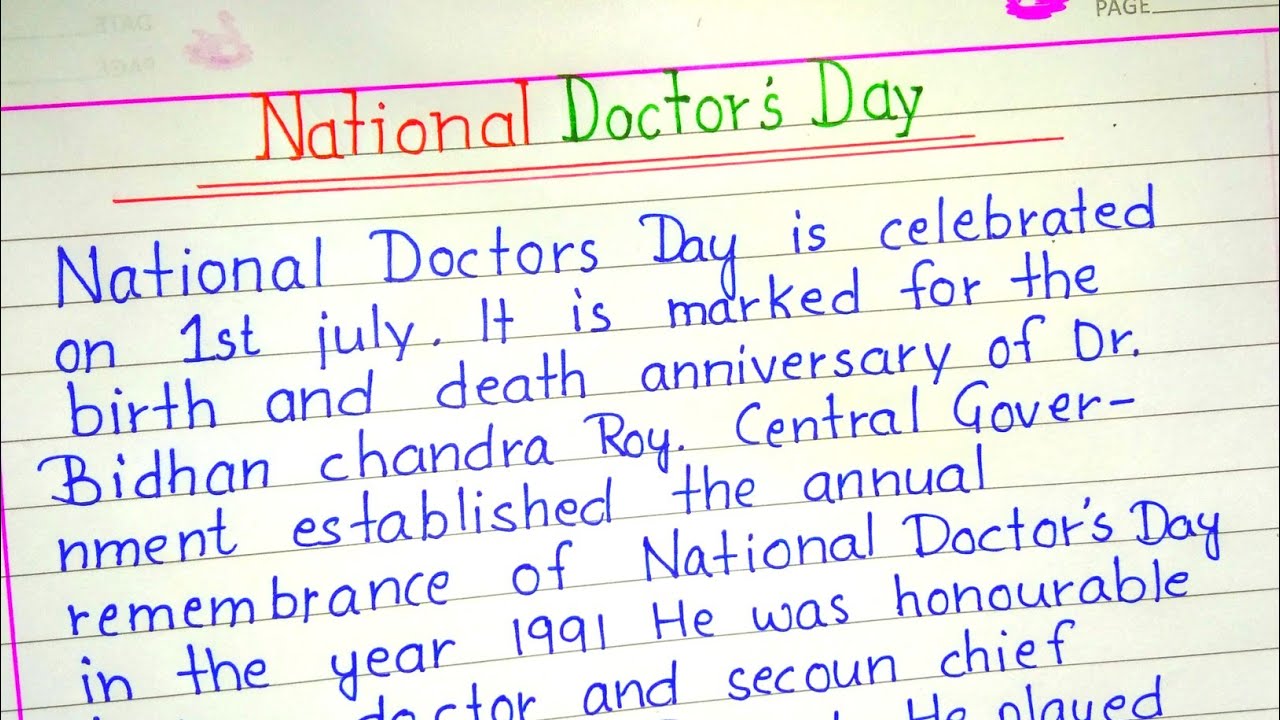 PAGE
DATE
PAGE
National Doctor's Day
National Doctors Day is celebrated
on 1st july. It is marked for the
birth and death anniversary of Dr.
Bidhan chandra Roy. Central Gover-
nment established the annual
remembrance of National Doctor's Day
in the year 1991 He was honourable
doctor and secoun chief
He played